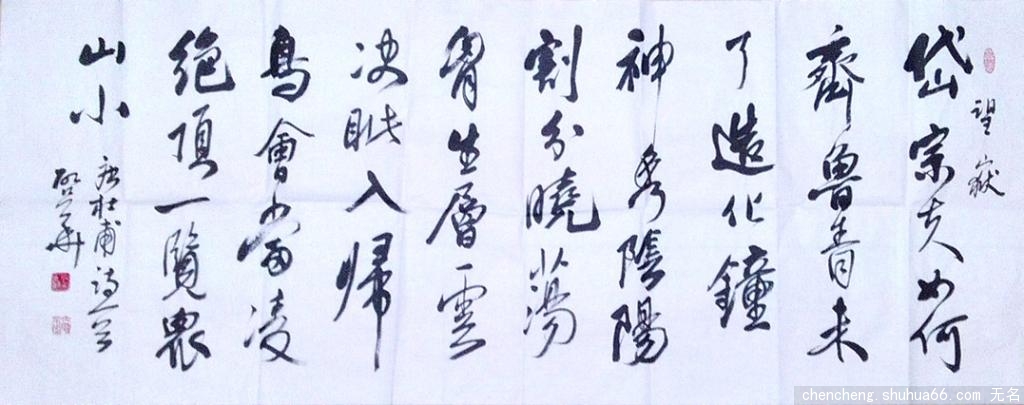 望嶽
岱宗夫如何
齊魯青未
了造化鐘
神秀陰陽
割分曉蕩
胷生層雲
決眦入歸
鳥會當凌
絕頂一覽眾
山小
唐杜甫诗一首
chencheng.shuhua66.com 无名